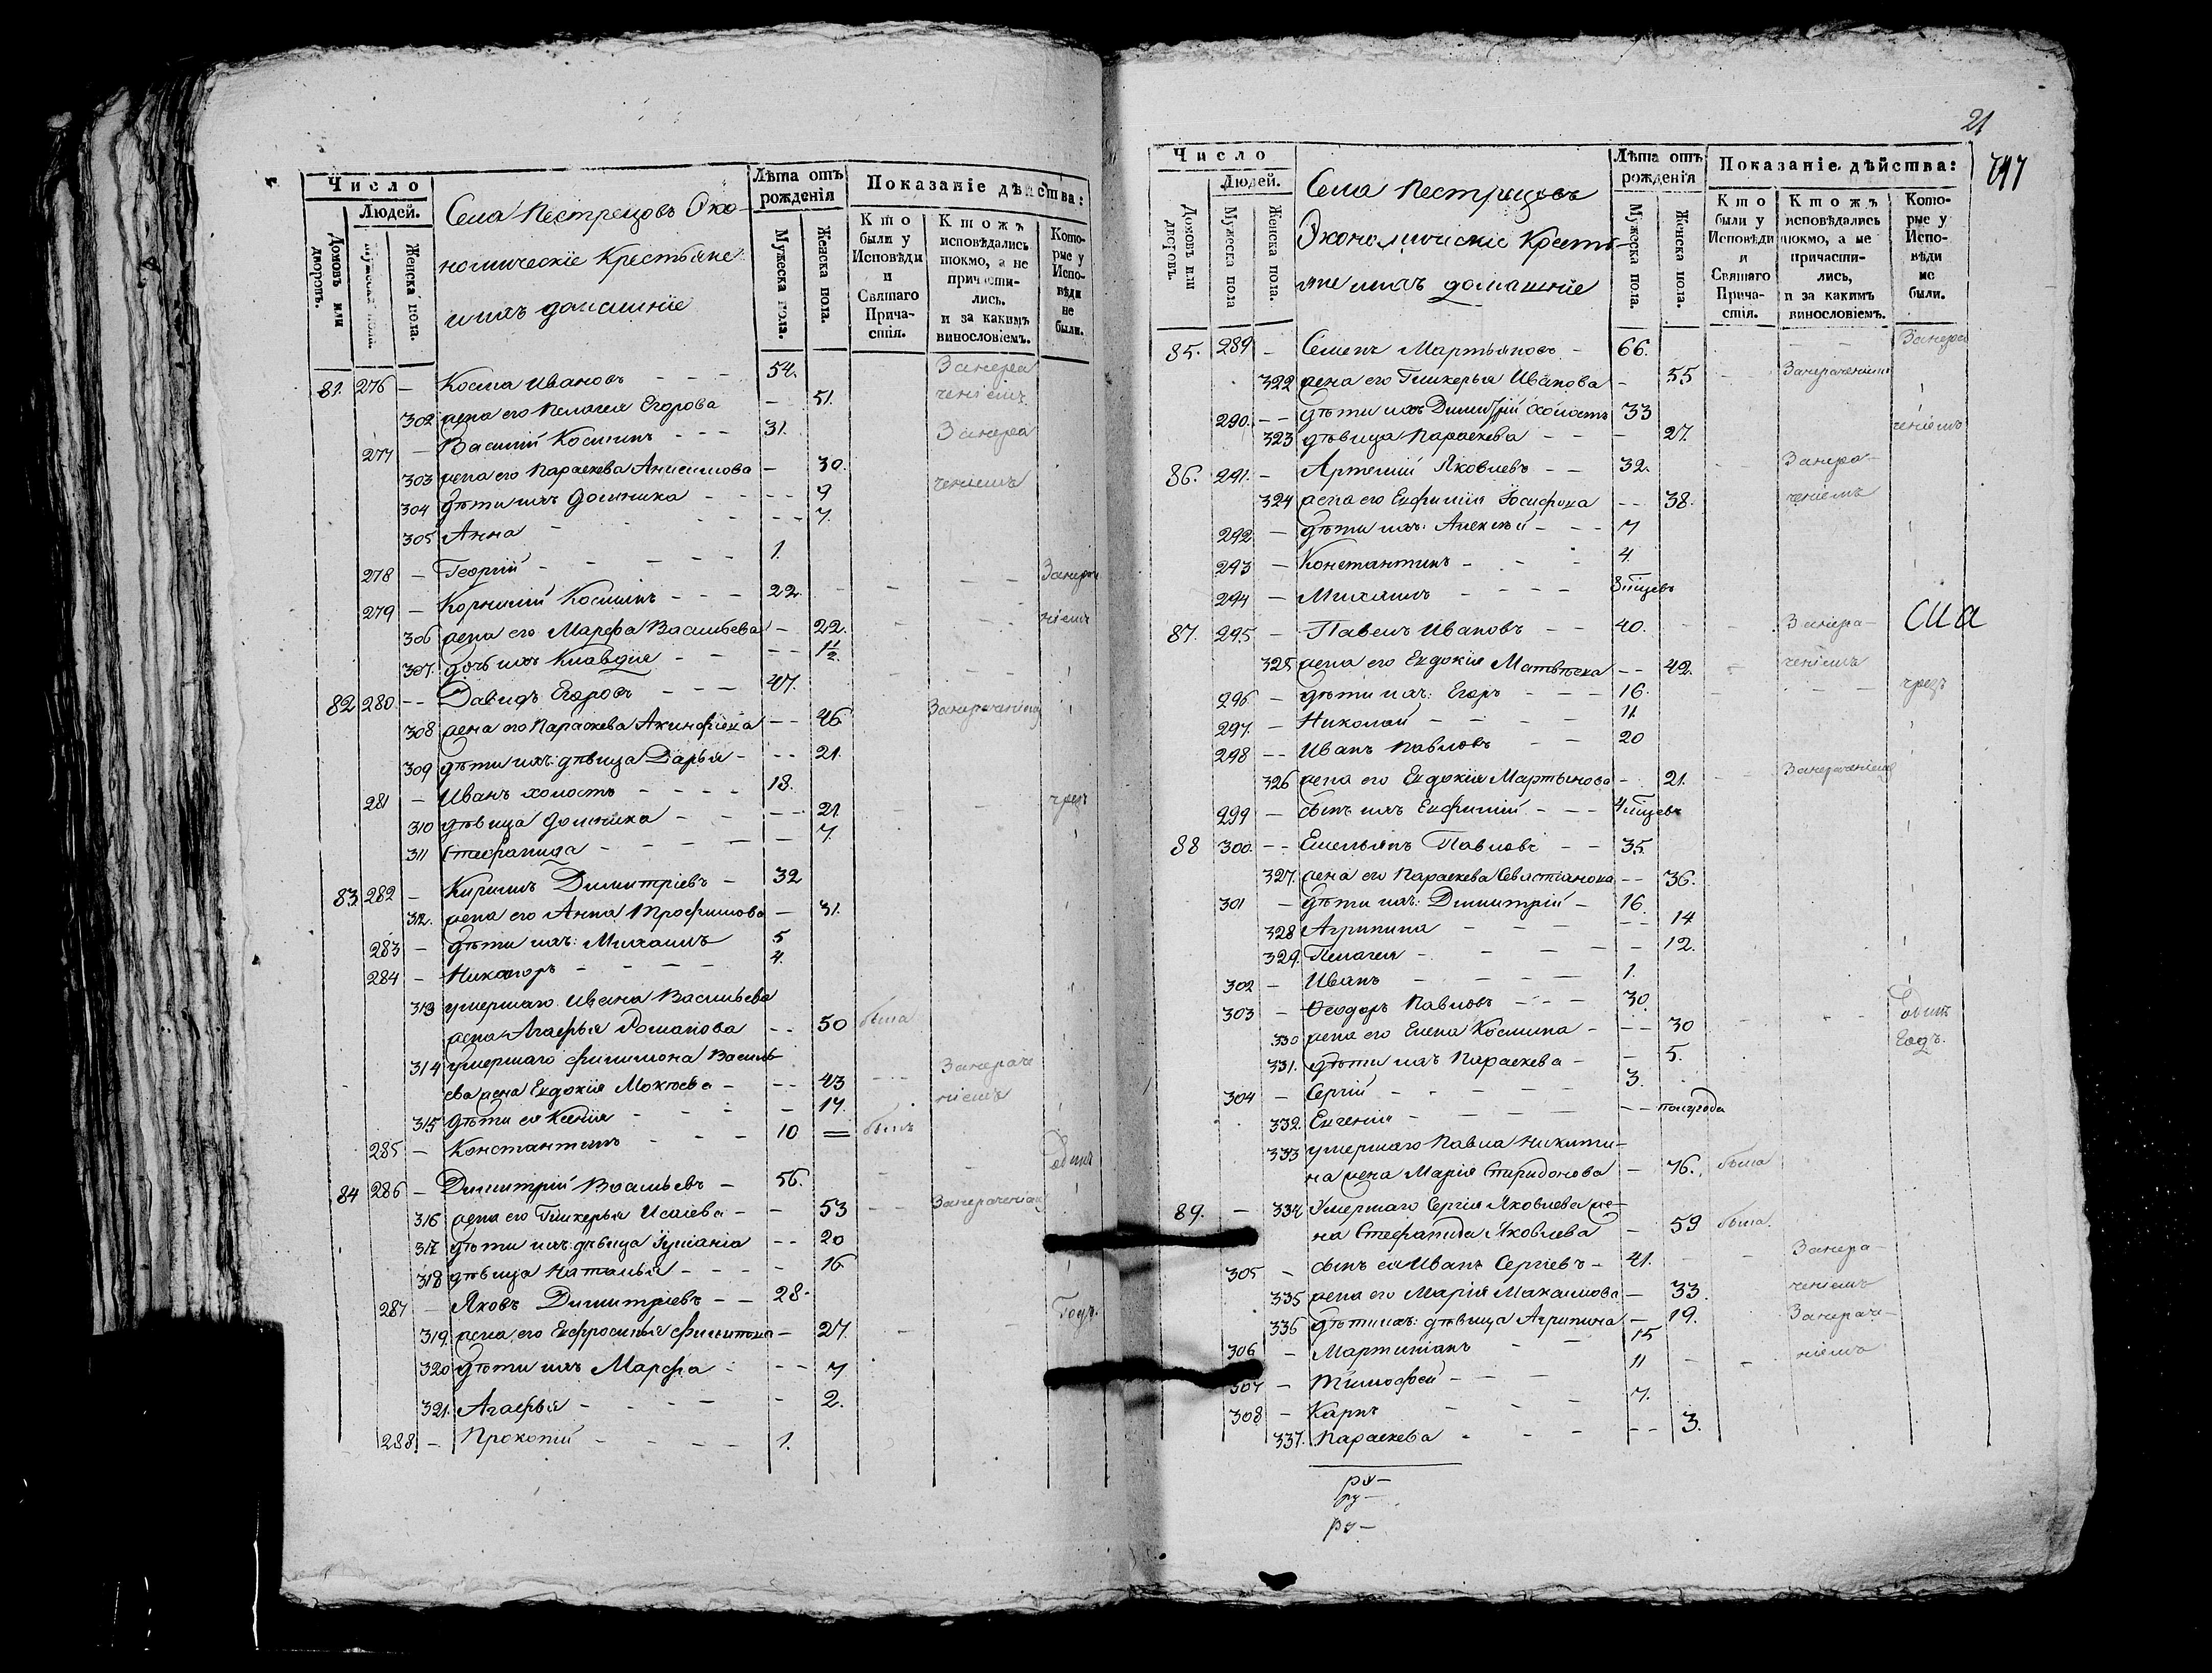 Число
Людей.
Домовъ или дворовъ.
Мужеска пола.
Женска пола.
Села Пестрецовъ Эко-
номическіе Крестьяне
и ихъ домашніе
Лѣта отъ рожденія
Мужеска пола.
Женска пола.
Показаніе дѣйства:
Кто были у Исповѣди и Святаго Причастія.
Ктожъ исповѣдались токмо, а не причастились, и за какимъ винословіемъ.
Которые у Исповѣди не были.
81. 276 – Косма Ивановъ – – – 54. Занерa
302 жена его Пелагея Егорова – 51. ченіемъ
277 – Василій Косминъ – – – 31. Занера
303 жена его Параскева Анисимова – 30. ченіемъ
304 дѣти ихъ Домника – – – – 9
305 Анна – – – – 7.
278 – Георгій – – – – – 1.
279 – Корнилій Косминъ – – – 22. – – – Занера
306 жена его Марѳа Васильева – 22. – – – ніемъ
307. дочь ихъ Клавдія – – – – 1½.
82 280 – – Давидъ Егоровъ – – – 47.
308 жена его Параскева Акинфіева – – 46 Занераченіемъ
309 дѣти ихъ: дѣвица Дарья – – – 21.
281 – Иванъ холостъ – – – – 18.
310 дѣвица Домника – – – – – 21. – – чрезъ
311 Стефанида – – – – – 7.
83. 282 – Кирилъ Димитріевъ – 32
312. жена его Анна Трофимова – 31.
283 – дѣти ихъ: Михаилъ 5
284 – Никаноръ – – – – 4.
313 умершаго Ивана Васильева
жена Агафья Романова – – 50 была
314 умершаго Филимона Василь-
ева жена Евдокія Мокіева – – – 43 – – Занераче
315 дѣти ея Ксенія – – – – 17. ніемъ
285 – Константинъ – – – 10 = былъ
84 286 – Димитрій Васильевъ – 56. – – одинъ
316 жена его Гликерья Исаіева – – 53 – – Занераченіемъ
317 дѣти ихъ: дѣвица Іуліанія – – 20
318 дѣвица Наталья – – – – 16
287 – Яковъ Димитріевъ – – 28. Годъ.
319. жена его Евфросинья Филипова – 27. – –
320 дѣти ихъ Марѳа – – – 7
321. Агафья – – – – – 2.
288 – Прокопій – – – – – 1.
21
797
Число
Людей.
Домовъ или дворовъ.
Мужеска пола
Женска пола.
Села Пестрецовъ
Экономическіе Кресть-
яне и ихъ домашніе
Лѣта отъ рожденія
Мужеска пола.
Женска пола.
Показаніе дѣйства:
Кто были у Исповѣди и Святаго Причастія.
Ктожъ исповѣдались токмо, а не причастились, и за какимъ винословіемъ.
Которые у Исповѣди не были.
85. 289 – Семенъ Мартьяновъ – 66. – – Занера
322 жена его Гликерья Иванова – 55 – Занераченіемъ
290. – – дѣти ихъ Димитрій холостъ 33
323 дѣвица Параскева – – – 27. ченіемъ
86. 291. – Артемій Яковлевъ – – 32. – – Занера–
324 жена его Евфимія Іосифова – – 38. ченіемъ
292 – дѣти ихъ: Алексѣй – – – 7
293 – Константинъ – – – 4.
294 – Михаилъ – – – – 8 мцевъ
87. 295 – Павелъ Ивановъ – – 40. – – Занера– сиа
325. жена его Евдокія Матвѣева – – 42. – ченіемъ
296 – дѣти ихъ: Егоръ – – – 16. – – – чрезъ
297. – Николай – – – – 11.
298 – – Иванъ Павловъ – – 20
326 жена его Евдокія Мартынова – – 21. – – Занераченіемъ
299 – сынъ ихъ Евфимій – – – 4 мцевъ
88 300 – – Емельянъ Павловъ – – 35.
327. жена его Параскева Севастіанова – – 36.
301 – дѣти ихъ: Димитрій – 16.
328 Агрипина – – – – – 14
329. Пелагея – – – – – 12.
302 – Иванъ – – – – 1.
303 – Ѳеодоръ Павловъ – – – 30. – – – одинъ
330 жена его Елена Космина – – – 30 Годъ.
331. дѣти ихъ Параскева – – 5.
304 – Сергій – – – – 3.
332. Евгенія – – – – – – полугода
333 умершаго Павла Никити-
на жена Марія Спиридонова – 76. была
89. – 334 Умершаго Сергія Яковлева же-
на Стефанида Яковлева – 59 была.
305 – сынъ ея Иванъ Сергіевъ – 41. – – Занера–
335 жена его Марія Максимова – 33. ченіемъ
336 дѣти ихъ: дѣвица Агрипина – 19. Занераче–
306 – Мартиніанъ – – 15 ніемъ
307 – Тимофей – – – 11 – –
308 – Карпъ – – – 7.
337. Параскева – – – – – 3.